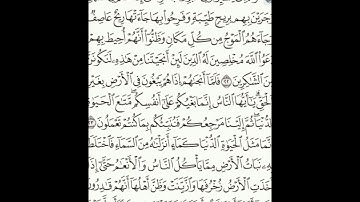 وَجَرَيْنَ بِهِم بِرِيحٍ طَيِّبَةٍ وَفَرِحُوا۟ بِهَا جَآءَتْهَا رِيحٌ عَاصِفٌ
جَآءَهُمُ ٱلْمَوْجُ مِن كُلِّ مَكَانٍ وَظَنُّوٓا۟ أَنَّهُمْ أُحِيطَ بِهِمْ
دَعَوُا۟ ٱللَّهَ مُخْلِصِينَ لَهُ ٱلدِّينَ لَئِنْ أَنجَيْتَنَا مِنْ هَٰذِهِۦ لَنَكُونَنَّ
مِنَ ٱلشَّٰكِرِينَ ٢٢ فَلَمَّآ أَنجَىٰهُمْ إِذَا هُمْ يَبْغُونَ فِى ٱلْأَرْضِ بِغَيْرِ
ٱلْحَقِّ يَٰٓأَيُّهَا ٱلنَّاسُ إِنَّمَا بَغْيُكُمْ عَلَىٰٓ أَنفُسِكُم مَّتَٰعَ ٱلْحَيَوٰةِ
ٱلدُّنْيَا ثُمَّ إِلَيْنَا مَرْجِعُكُمْ فَنُنَبِّئُكُم بِمَا كُنتُمْ تَعْمَلُونَ ٢٣
إِنَّمَا مَثَلُ ٱلْحَيَوٰةِ ٱلدُّنْيَا كَمَآءٍ أَنزَلْنَٰهُ مِنَ ٱلسَّمَآءِ فَٱخْتَلَطَ
بِهِۦ نَبَاتُ ٱلْأَرْضِ مِمَّا يَأْكُلُ ٱلنَّاسُ وَٱلْأَنْعَٰمُ حَتَّىٰٓ إِذَآ
أَخَذَتِ ٱلْأَرْضُ زُخْرُفَهَا وَٱزَّيَّنَتْ وَظَنَّ أَهْلُهَآ أَنَّهُمْ قَٰدِرُونَ